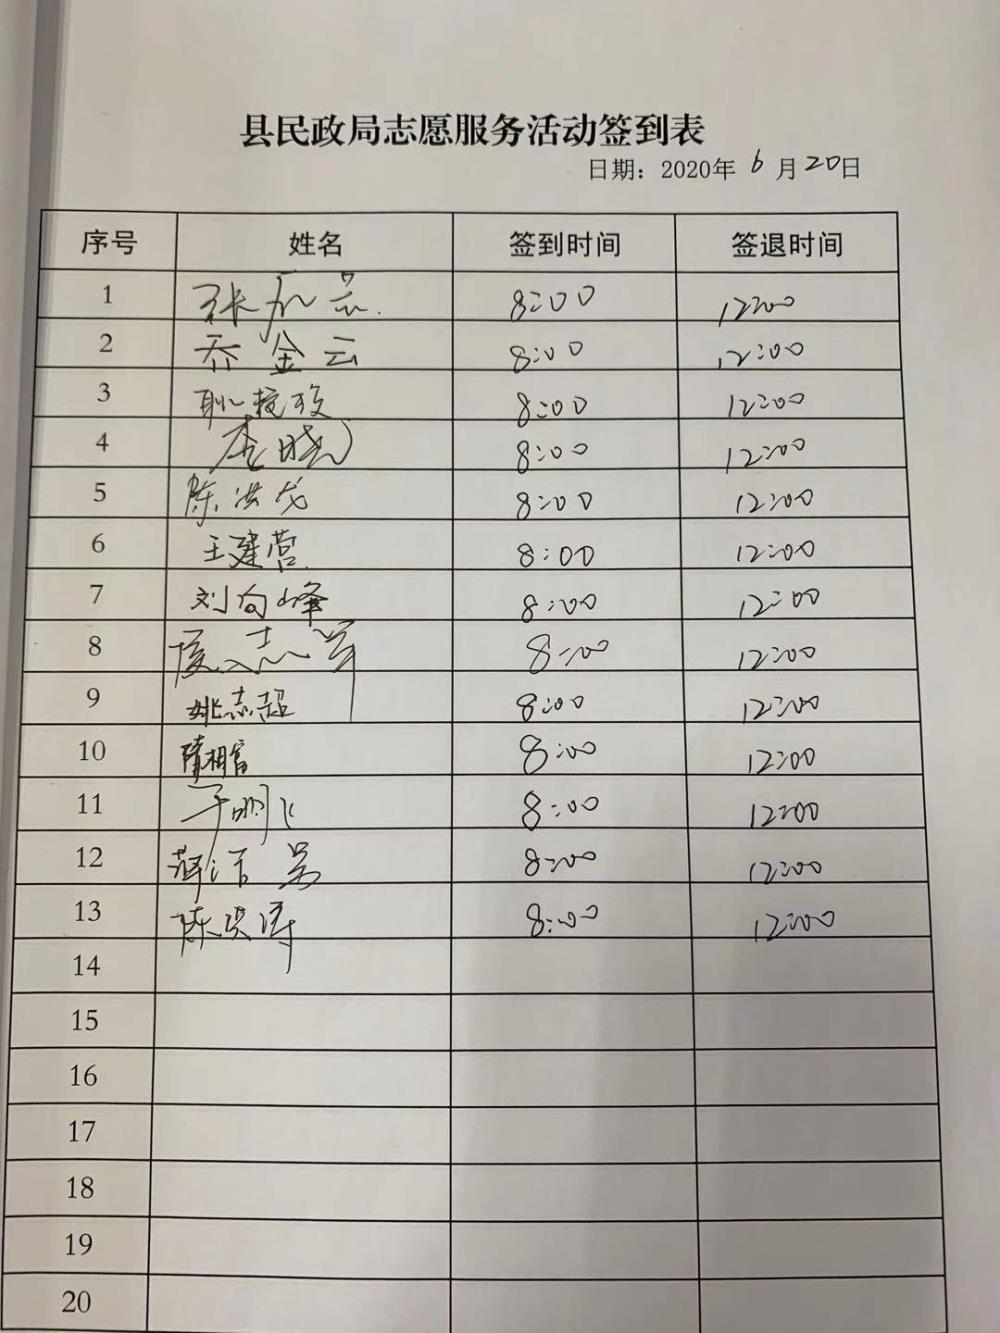 县民政局志愿服务活动签到表
日期：2020年 6月20日
序号 姓名 签到时间 签退时间
1 张 云 8:00 12:00
2 乔金云 8:00 12:00
3 8:00 12:00
4 李晓 8:00 12:00
5 陈洪龙 8:00 12:00
6 王建营 8:00 12:00
7 刘向峰 8:00 12:00
8 志 8:00 12:00
9 姚志超 8:00 12:00
10 隋相富 8:00 12:00
11 于明飞 8:00 12:00
12 薛 8:00 12:00
13 陈洪涛 8:00 12:00
14
15
16
17
18
19
20